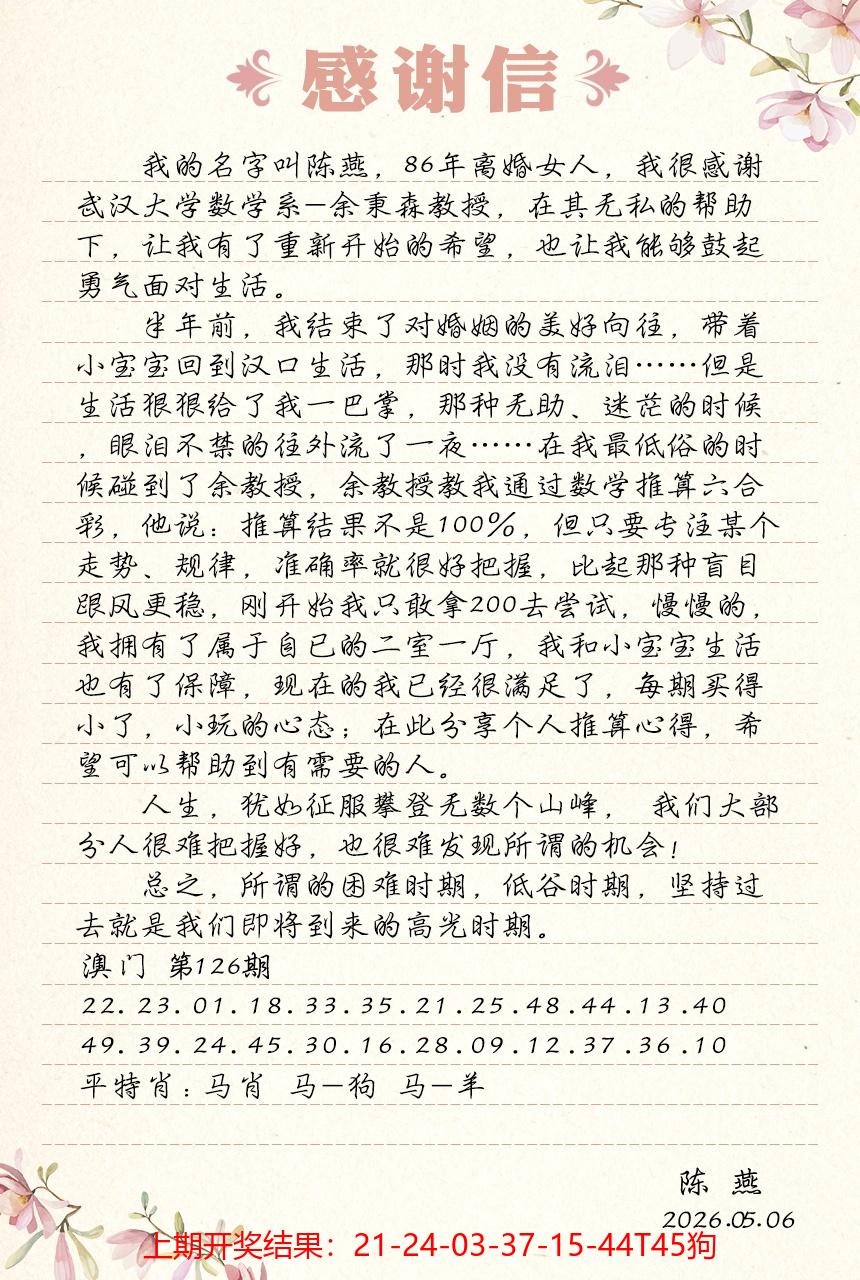 感谢信
我的名字叫陈燕，86年离婚女人，我很感谢
武汉大学数学系-余秉森教授，在其无私的帮助
下，让我有了重新开始的希望，也让我能够鼓起
勇气面对生活。
半年前，我结束了对婚姻的美好向往，带着
小宝宝回到汉口生活，那时我没有流泪……但是
生活狠狠给了我一巴掌，那种无助、迷茫的时候
，眼泪不禁的往外流了一夜……在我最低俗的时
候碰到了余教授，余教授教我通过数学推算六合
彩，他说：推算结果不是100%，但只要专注某个
走势、规律，准确率就很好把握，比起那种盲目
跟风更稳，刚开始我只敢拿200去尝试，慢慢的，
我拥有了属于自已的二室一厅，我和小宝宝生活
也有了保障，现在的我已经很满足了，每期买得
小了，小玩的心态；在此分享个人推算心得，希
望可以帮助到有需要的人。
人生，犹如征服攀登无数个山峰， 我们大部
分人很难把握好，也很难发现所谓的机会！
总之，所谓的困难时期，低谷时期，坚持过
去就是我们即将到来的高光时期。
澳门 第126期
22.23.01.18.33.35.21.25.48.44.13.40
49.39.24.45.30.16.28.09.12.37.36.10
平特肖：马肖 马-狗 马-羊
陈 燕
2026.05.06
上期开奖结果：21-24-03-37-15-44T45狗